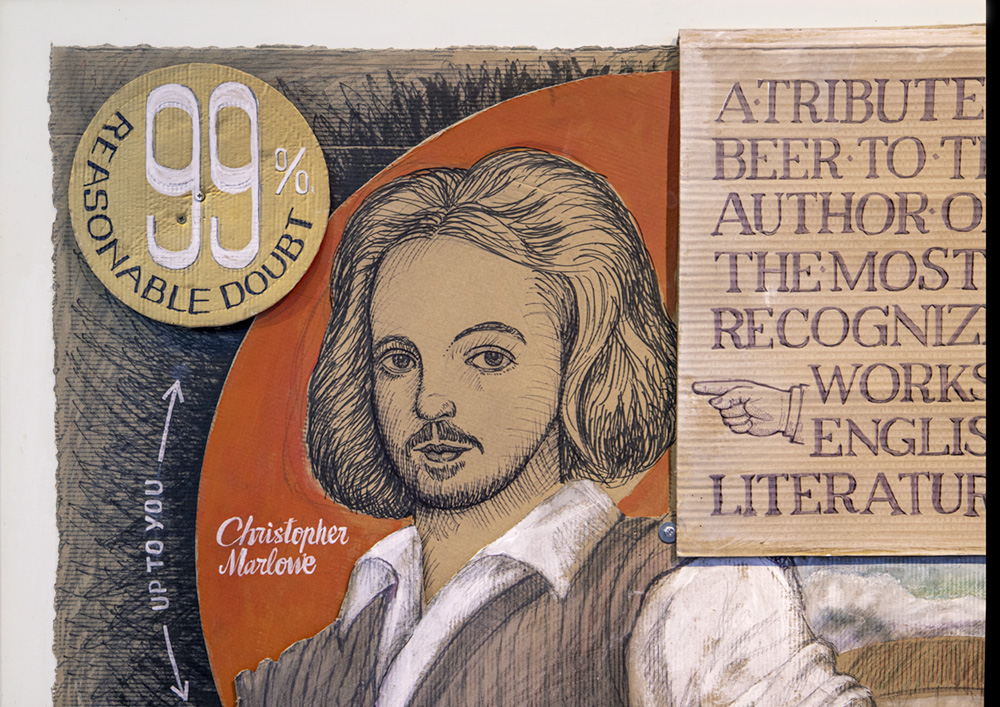 99%
REASONABLE DOUBT
UP TO YOU
Christopher
Marlowe
A·TRIBUTE
BEER·TO·
AUTHOR·
THE·MOST
WORKS
LITERATUR